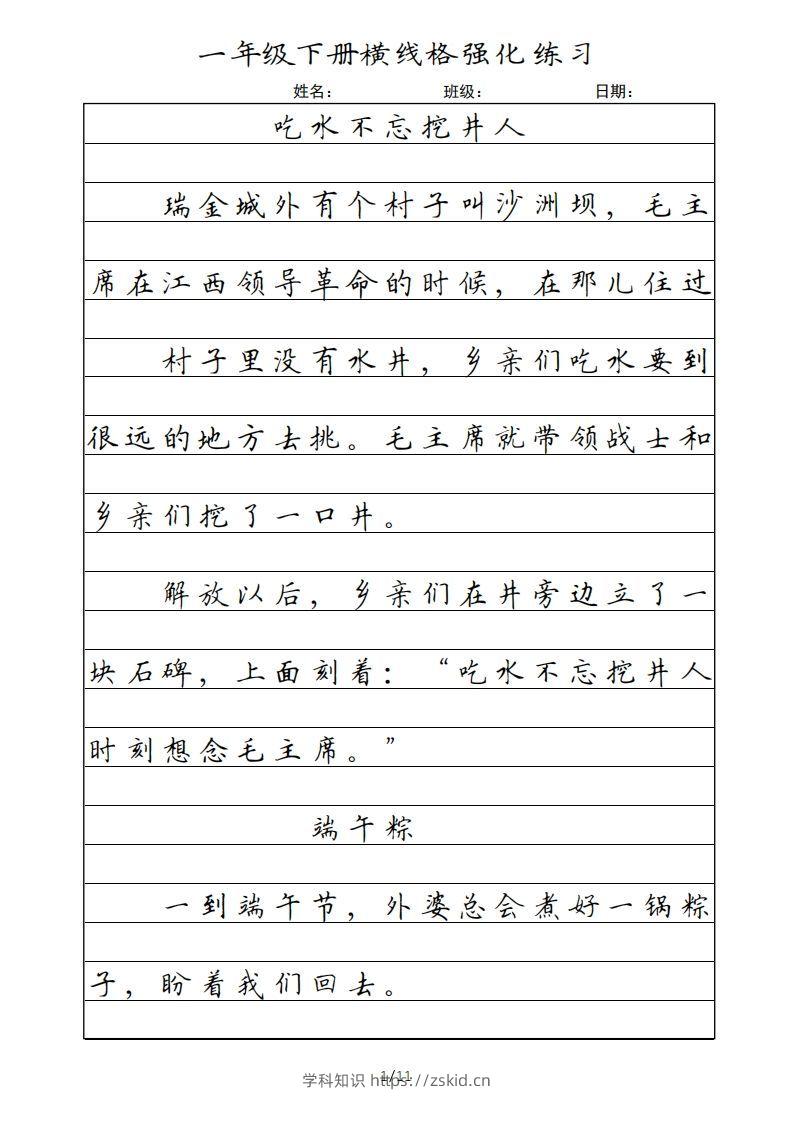 一年级下册横线格强化练习
姓名： 班级： 日期：
吃水不忘挖井人
瑞金城外有个村子叫沙洲坝，毛主
席在江西领导革命的时候，在那儿住过
村子里没有水井，乡亲们吃水要到
很远的地方去挑。毛主席就带领战士和
乡亲们挖了一口井。
解放以后，乡亲们在井旁边立了一
块石碑，上面刻着：“吃水不忘挖井人
时刻想念毛主席。”
端午粽
一到端午节，外婆总会煮好一锅粽
子，盼着我们回去。
1/11
学科知识 https://zskid.cn